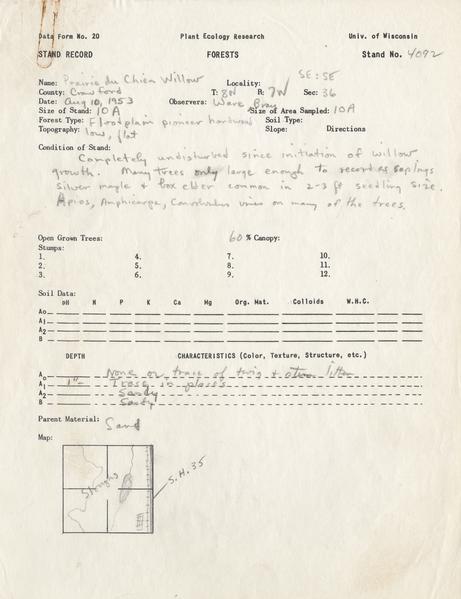 Data Form No. 20 Plant Ecology Research Univ. of Wisconsin
STAND RECORD FORESTS Stand No. 4092
Name: Prairie du Chien Willow Locality: SE:SE
County: Crawford T: 8N R: 7W Sec: 36
Date: Aug 10, 1953 Observers: Ware Bray
Size of Stand: 10A Size of Area Sampled: 10A
Forest Type: Floodplain pioneer hardwood Soil Type:
Topography: low, flat Slope: Directions
Condition of Stand:
Completely undisturbed since initiation of willow
growth. Many trees only large enough to record as saplings
silver maple & box elder common in 2-3 ft seedling size.
Apios, Amphicarpa, Convolvulus vines on many of the trees.
Open Grown Trees: 60 % Canopy:
Stumps:
1. 4. 7. 10.
2. 5. 8. 11.
3. 6. 9. 12.
Soil Data:
pH N P K Ca Mg Org. Mat. Colloids W.H.C.
Ao
A1
A2
B
DEPTH CHARACTERISTICS (Color, Texture, Structure, etc.)
Ao None or trace of twig & other litter
A1 1"- Trace in places
A2 Sandy
B Sandy
Parent Material: Sand
Map:
S.H. 35